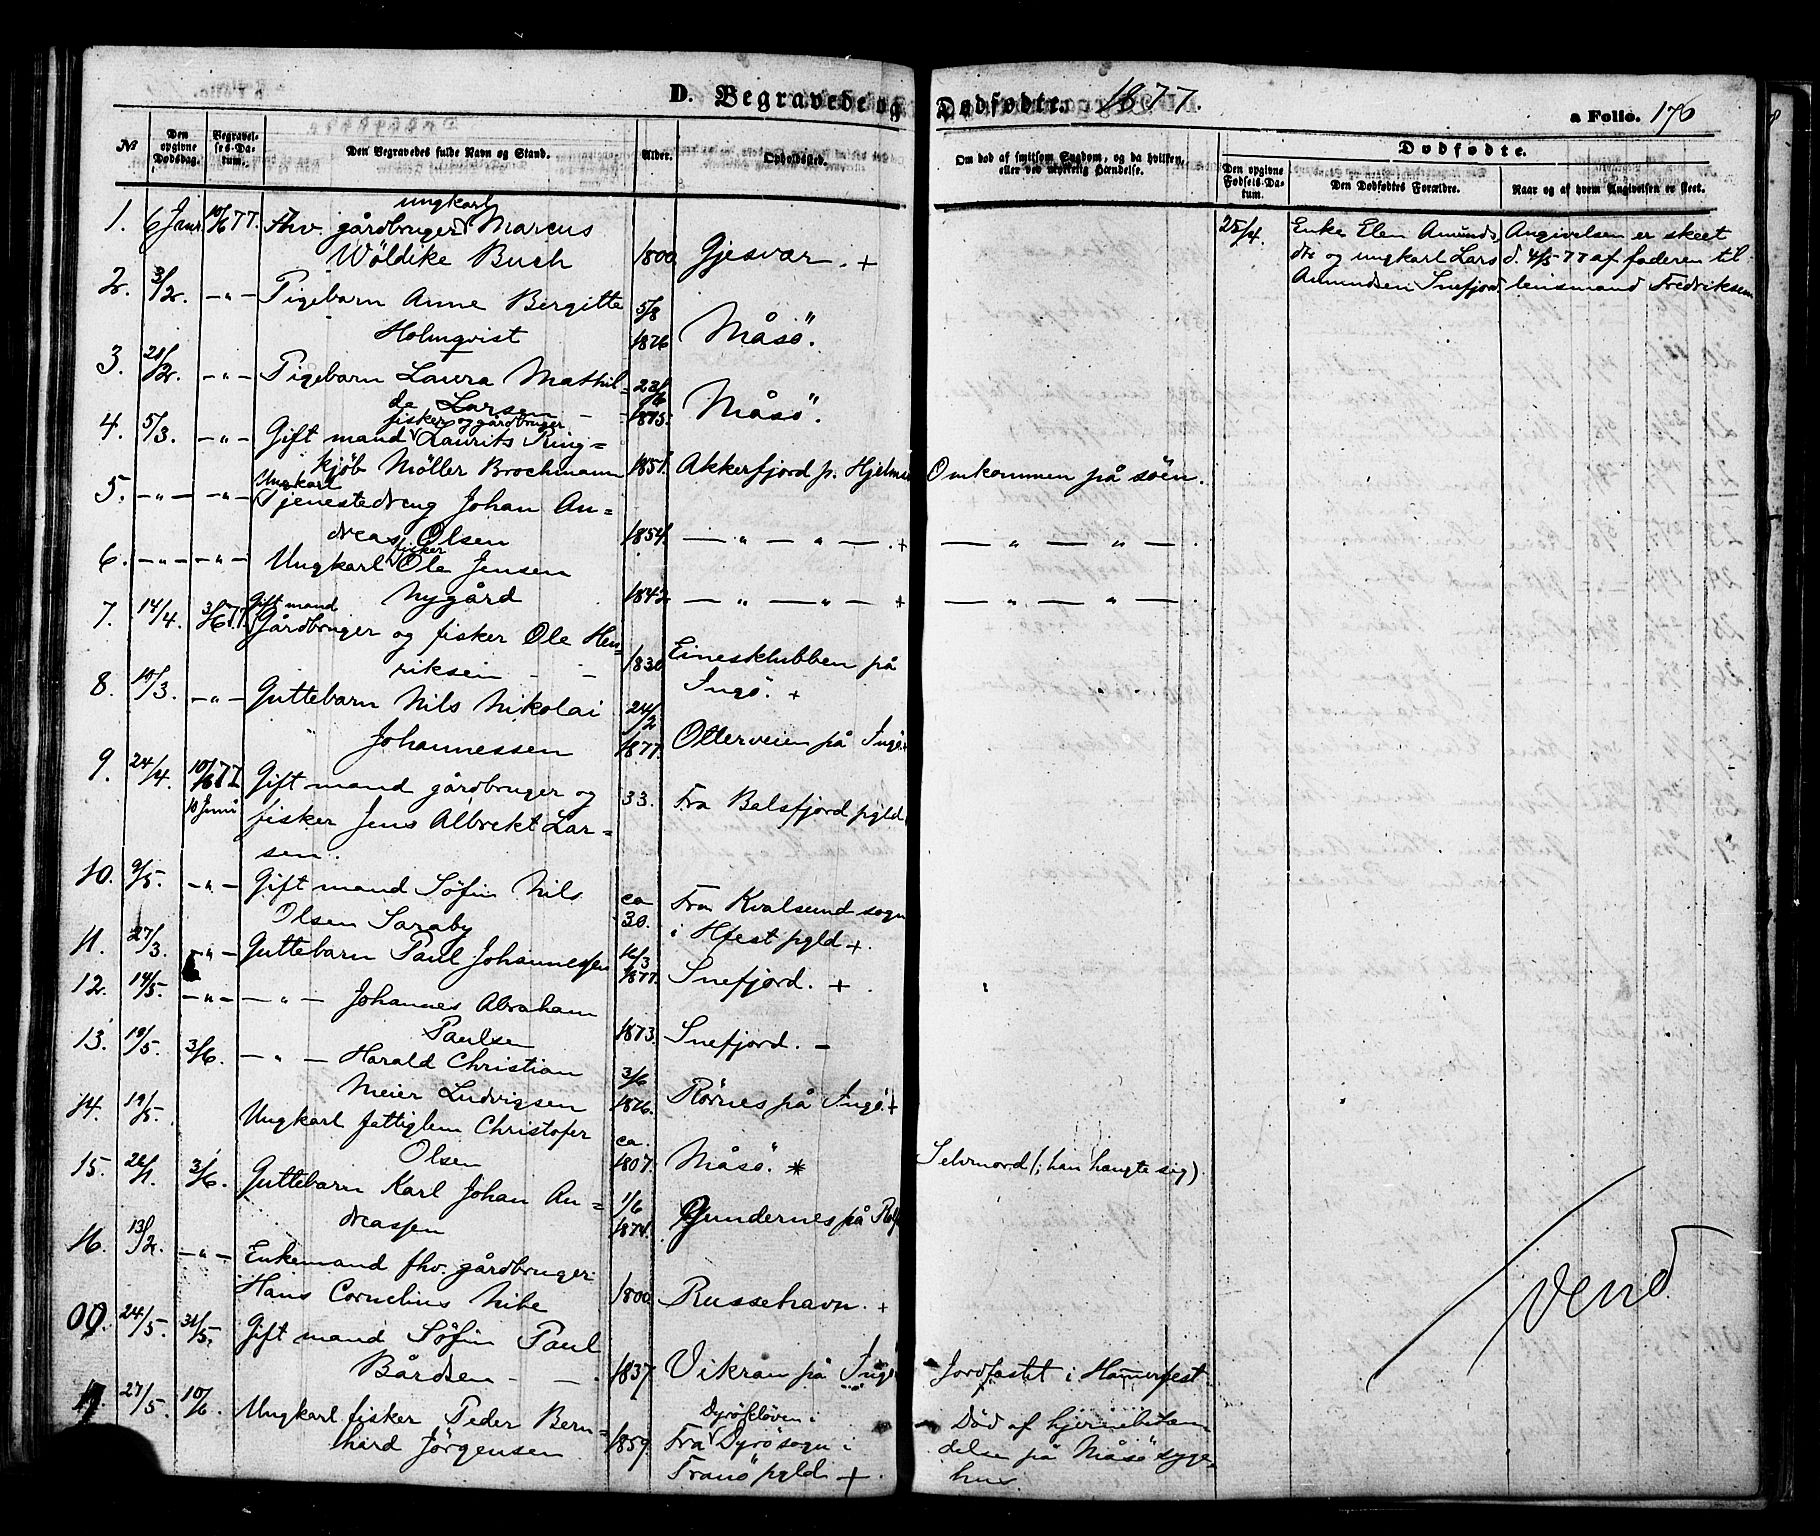 D. Begravede og Dødfødte. 1877.
a Folio. 176
№
Den opgivne Dødsdag.
Begravelses-Datum.
Den Begravedes fulde Navn og Stand.
Alder.
Opholdssted.
Om død af smitsom Sygdom, og da hvilken, eller ved ulykkelig Hændelse.
Dødfødte.
Den opgivne Fødsels-Datum.
Den Dødfødtes Forældre.
Naar og af hvem Angivelsen er skeet.
ungkarl
1. 6 Janr 10/6 77. Fhv. gårdbruger Marcus
Wöldike Buch 1800 Gjesvær. +
2. 3/2. – " – Pigebarn Anne Bergitte 5/8
Holmqvist 1876 Måsö.
3. 21/2. – " – Pigebarn Laura Mathil- 23/6
de Larsen – 1875. Måsö.
fisker og gårdbruger
4. 5/3. – " – Gift mand Laurits Ring=
kjöb Möller Brochmann 1851. Akkerfjord p. Hjelmsö Omkommen på söen.
Ungkarl
5. – " – – " – Tjenestedreng Johan An=
dreas Olsen 1854. – " – " – . + – " – " –
fisker
6. – " – – " – Ungkarl Ole Jensen
Nygård 1842 – " – " – + – " – " – .
Gift mand
7. 14/4. 3/6 77. Gårdbruger og fisker Ole Hen=
riksen – – 1830 Einesklubben på
Ingö. +
8. 10/3. – " – Guttebarn Nils Nikolai 24/2
Johannessen 1877. Otterveien på Ingö +
9. 24/4. 10/6 77 Gift mand gårdbruger og 33. Fra Balsfjord pgld.
10 Juni fisker Jens Albrekt Lar=
sen.
10. 9/5. – " – Gift mand Söfin Nils ca 30. Fra Kvalsund sogn
Olsen Saraby i Hfest pgld +.
11. 27/3. – " – Guttebarn Paul Johannessen 16/3 1877. Snefjord. +
12. 14/5. – " – – " – Johannes Abraham
Paulsen 1873. Snefjord. –
13. 19/5. 3/6. – " – Harald Christian 3/6
Meier Ludvigsen 1876. Rörnes på Ingö. +
14. 19/5. Ungkarl fattiglem Christofer ca.
Olsen 1807. Måsö. * Selvmord (; han hængte sig).
15. 26/1. 3/6. Guttebarn Karl Johan An= 1/6
dreassen 1874. Gundernes på Rolfsö
16. 13/2. – " – Enkemand fhv. gårdbruger
Hans Cornelius Nibe 1800 Russehavn. +
00. 24/5. 31/5. Gift mand Söfin Paul
Bårdsen – – . 1837. Vikran på Ingö – Jordfæstet i Hamerfest.
17. 27/5. 10/6. Ungkarl fisker Peder Bern=
hard Jörgensen 1859.
Dyröklöven i
Fra Dyrö sogn i
Tranö pgld. +
– Död af hjernebetæn
delse på Måsö syge=
hus.
25/4. Enke Elen Amunds
dtr og ungkarl Lars
Amundsen Snefjord
Angivelsen er skeet
d. 4/5 77 af faderen til
lensmand Fredriksen
Vend.